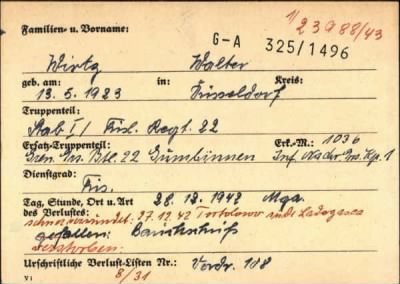 Familien- u. Vorname:
1/23988/43
G-A 325/1496
Wirtz Walter
geb. am: in: Kreis:
13.5.1923 Düsseldorf
Truppenteil:
Stab I/ Füs. Regt. 22
Ersatz-Truppenteil: Erk.-M.: 1036
Gren. Ers. Btl. 22 Gumbinnen Inf. Ers. Kp. 1
Dienstgrad:
Füs.
Tag, Stunde, Ort u. Art 28.12.1942 Mga
des Verlustes: schwer verwundet: 27.12.42 südl. Ladogasee
gefallen: Bauchschuß
verstorben:
Urschriftliche Verlust-Listen Nr.: Vordr. 108
8/31
V1